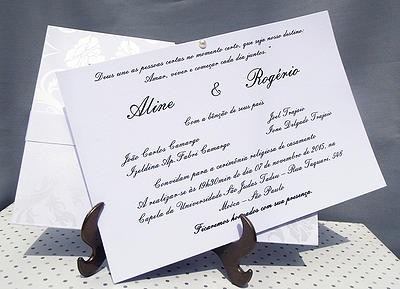 Deus une as pessoas certas no momento certo, que seja nosso destino:
Amar, viver e começar cada dia juntos."
Aline & Rogério
Com a bênção de seus pais
João Carlos Camargo Joel Trajeio
Izoldina Ap. Fabri Camargo Irne Delgado Trajeio
Convidam para a cerimônia religiosa de casamento
A realizar-se às 19h30min do dia 07 de novembro de 2015, na
Capela da Universidade São Judas Tadeu - Rua Taquari, 546
Moóca - São Paulo
Ficaremos honrados com sua presença.